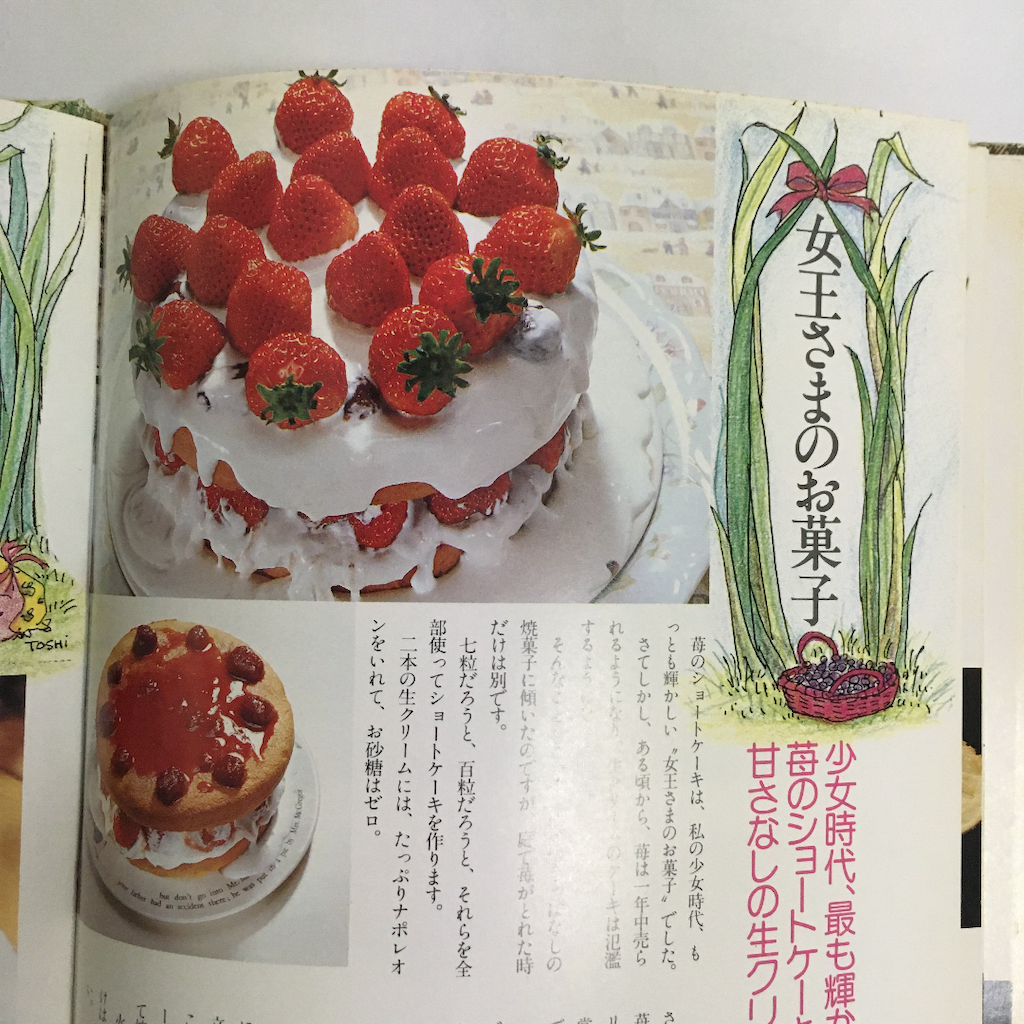 女王さまのお菓子
少女時代、最も輝か
苺のショートケーキ
甘さなしの生クリ
苺のショートケーキは、私の少女時代、も
っとも輝かしい〝女王さまのお菓子〟でした。
さてしかし、ある頃から、苺は一年中売ら
れるようになり
のケーキは氾濫
するよう
そんな
なしの
焼菓子に傾いたのですが、庭で苺がとれた時
だけは別です。
七粒だろうと、百粒だろうと、それらを全
部使ってショートケーキを作ります。
二本の生クリームには、たっぷりナポレオ
ンをいれて、お砂糖はゼロ。
TOSHi
but don't go into Mr.
your father had an accident there; he was put in a pie by Mrs. McGregor